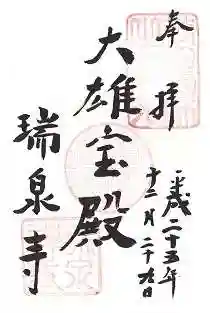 奉拝
平成二十五年
十二月二十九日
大雄宝殿
瑞泉寺